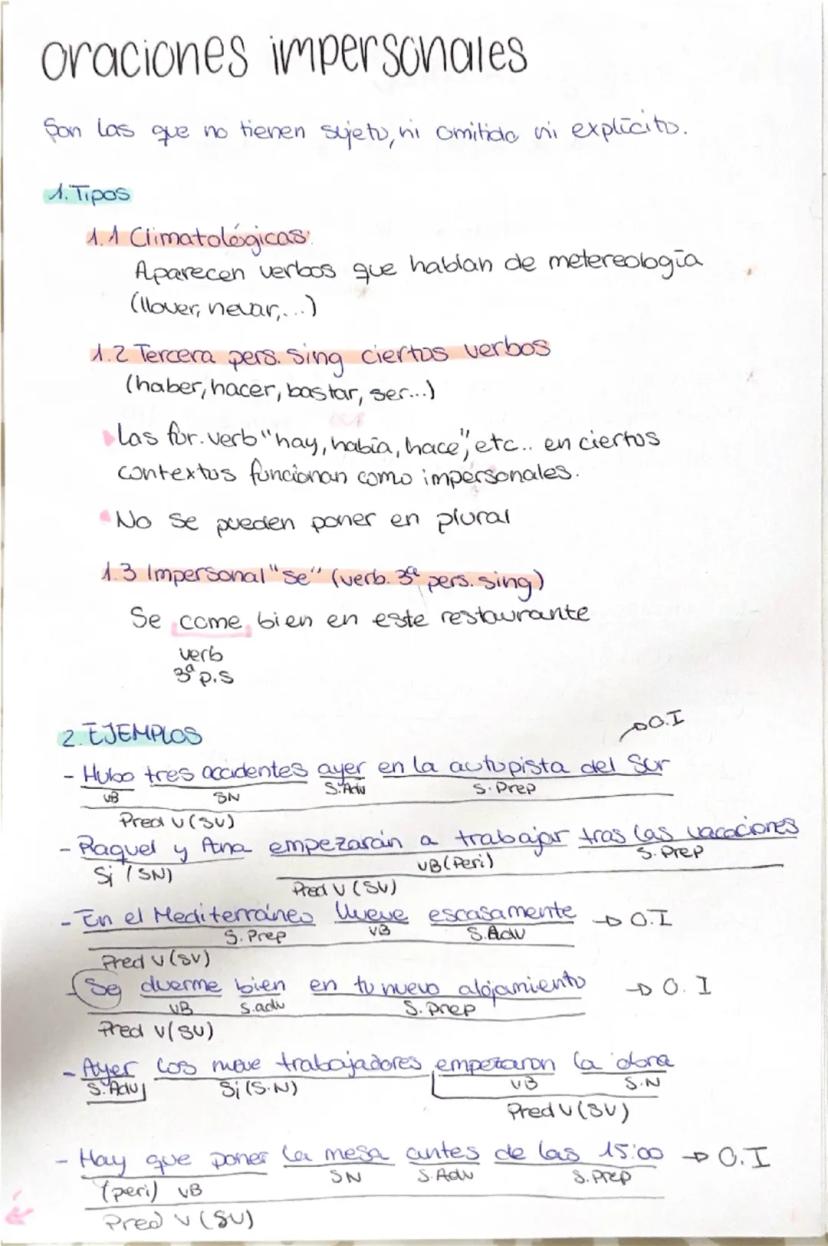 oraciones impersonales
Son las que no tienen sujeto, ni omitido ni explícito.
1. Tipos
1.1 Climatológicas
Aparecen verbos que hablan de metereología
(llover, nevar,...)
1.2 Tercera pers. sing ciertos verbos
(haber, hacer, bastar, ser...)
Las for. verb "hay, había, hace", etc.. en ciertos
contextos funcionan como impersonales.
No se pueden poner en plural
1.3 Impersonal "se" (verb. 3ª pers. sing)
Se come bien en este restaurante
verb
3ª p.s
2. EJEMPLOS
→ O.I
- Hubo tres accidentes ayer en la autopista del Sur
VB SN S.Adv S.Prep
Pred V (SV)
- Raquel y Ana empezarán a trabajar tras las vacaciones
Sj (SN) VB (Peri) S.Prep
Pred V (SV)
- En el Mediterráneo llueve escasamente → O.I
S.Prep VB S.Adv
Pred V (SV)
- Se duerme bien en tu nuevo alojamiento → O.I
VB S.adv S.Prep
Pred V (SV)
- Ayer los nueve trabajadores empezaron la obra
S.Adv Sj (S.N) VB S.N
Pred V (SV)
- Hay que poner la mesa antes de las 15:00 → O.I
(peri) VB SN S.Adv S.Prep
Pred V (SV)